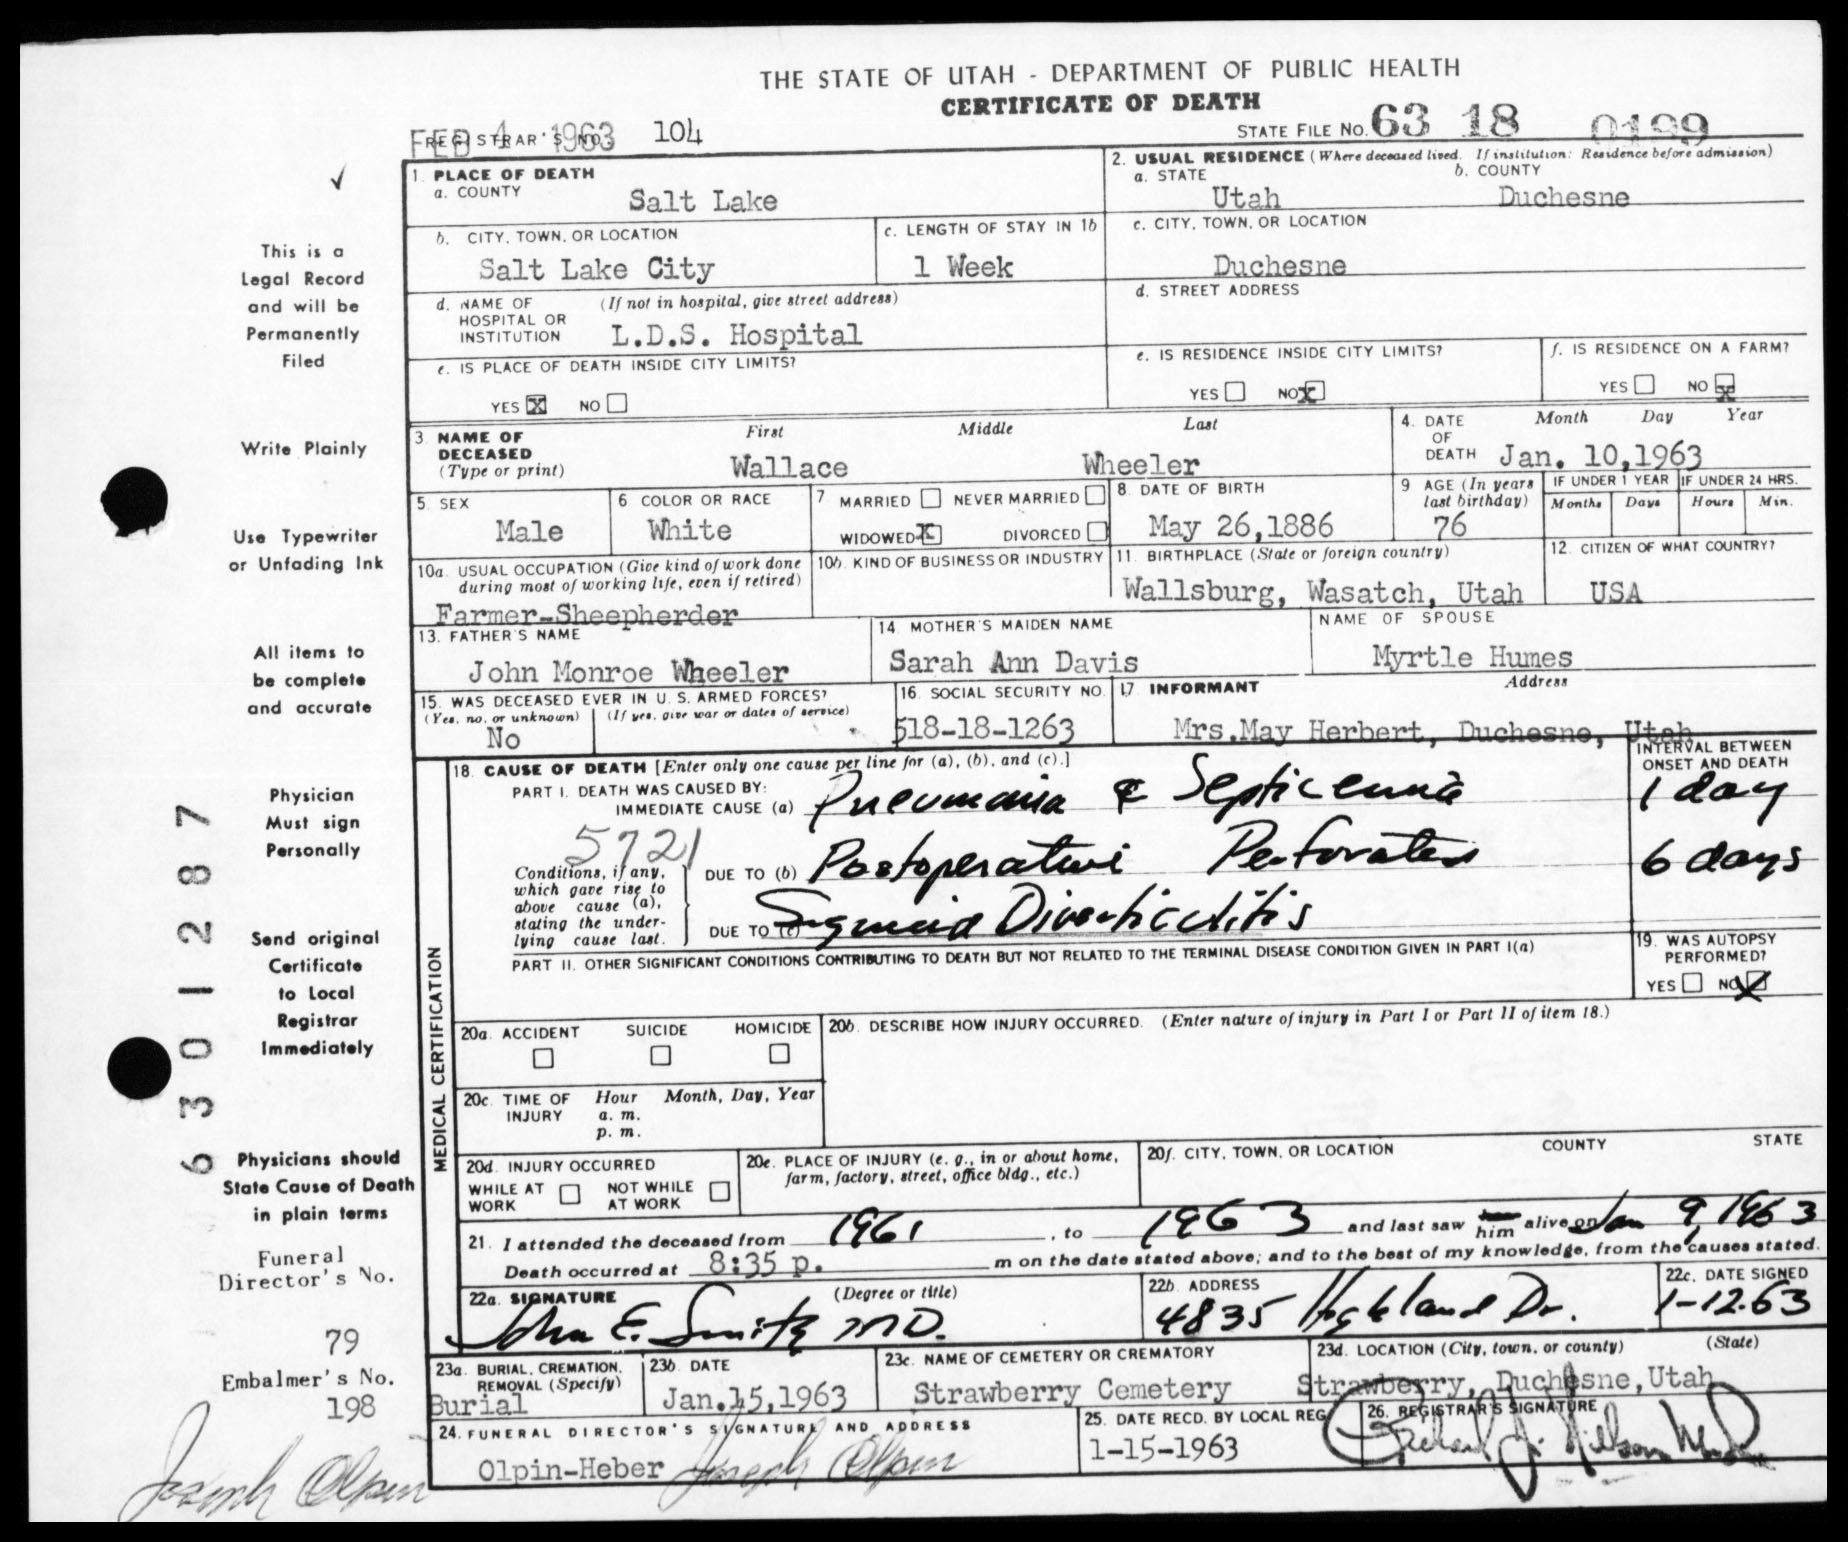 THE STATE OF UTAH - DEPARTMENT OF PUBLIC HEALTH
CERTIFICATE OF DEATH
FEB 4 1963 REGISTRAR'S NO. 104
STATE FILE NO. 63 18 0199
1. PLACE OF DEATH
a. COUNTY
Salt Lake
2. USUAL RESIDENCE (Where deceased lived. If institution: Residence before admission)
a. STATE b. COUNTY
Utah Duchesne
b. CITY, TOWN, OR LOCATION
Salt Lake City
c. LENGTH OF STAY IN 1b
1 Week
c. CITY, TOWN, OR LOCATION
Duchesne
d. NAME OF HOSPITAL OR INSTITUTION (If not in hospital, give street address)
L.D.S. Hospital
d. STREET ADDRESS
e. IS PLACE OF DEATH INSIDE CITY LIMITS?
YES X NO
e. IS RESIDENCE INSIDE CITY LIMITS?
YES NO X
f. IS RESIDENCE ON A FARM?
YES NO X
3. NAME OF DECEASED (Type or print)
First Middle Last
Wallace Wheeler
4. DATE OF DEATH Month Day Year
Jan. 10,1963
5. SEX
Male
6 COLOR OR RACE
White
7 MARRIED NEVER MARRIED
WIDOWED X DIVORCED
8. DATE OF BIRTH
May 26,1886
9 AGE (In years last birthday)
76
IF UNDER 1 YEAR IF UNDER 24 HRS.
Months Days Hours Min.
10a. USUAL OCCUPATION (Give kind of work done during most of working life, even if retired)
Farmer-Sheepherder
10b. KIND OF BUSINESS OR INDUSTRY
11. BIRTHPLACE (State or foreign country)
Wallsburg, Wasatch, Utah
12. CITIZEN OF WHAT COUNTRY?
USA
13. FATHER'S NAME
John Monroe Wheeler
14. MOTHER'S MAIDEN NAME
Sarah Ann Davis
NAME OF SPOUSE
Myrtle Humes
15. WAS DECEASED EVER IN U. S. ARMED FORCES?
(Yes, no, or unknown) (If yes, give war or dates of service)
No
16. SOCIAL SECURITY NO.
518-18-1263
17. INFORMANT Address
Mrs.May Herbert, Duchesne, Utah
MEDICAL CERTIFICATION
18. CAUSE OF DEATH [Enter only one cause per line for (a), (b), and (c).]
INTERVAL BETWEEN ONSET AND DEATH
PART I. DEATH WAS CAUSED BY:
IMMEDIATE CAUSE (a) Pneumonia & Septicemia 1 day
5721
Conditions, if any, which gave rise to above cause (a), stating the underlying cause last.
DUE TO (b) Postoperative Perforated 6 days
DUE TO (c) Sigmoid Diverticulitis
PART II. OTHER SIGNIFICANT CONDITIONS CONTRIBUTING TO DEATH BUT NOT RELATED TO THE TERMINAL DISEASE CONDITION GIVEN IN PART I(a)
19. WAS AUTOPSY PERFORMED?
YES NO X
20a. ACCIDENT SUICIDE HOMICIDE
20b. DESCRIBE HOW INJURY OCCURRED. (Enter nature of injury in Part I or Part II of item 18.)
20c. TIME OF INJURY Hour Month, Day, Year
a. m.
p. m.
20d. INJURY OCCURRED
WHILE AT WORK NOT WHILE AT WORK
20e. PLACE OF INJURY (e. g., in or about home, farm, factory, street, office bldg., etc.)
20f. CITY, TOWN, OR LOCATION COUNTY STATE
21. I attended the deceased from 1961, to 1963 and last saw him alive on Jan 9, 1963
Death occurred at 8:35 p. m on the date stated above; and to the best of my knowledge, from the causes stated.
22a. SIGNATURE (Degree or title)
John E. Smith MD.
22b. ADDRESS
4835 Highland Dr.
22c. DATE SIGNED
1-12-63
23a. BURIAL, CREMATION, REMOVAL (Specify)
Burial
23b. DATE
Jan.15,1963
23c. NAME OF CEMETERY OR CREMATORY
Strawberry Cemetery
23d. LOCATION (City, town, or county) (State)
Strawberry, Duchesne,Utah
24. FUNERAL DIRECTOR'S SIGNATURE AND ADDRESS
Olpin-Heber Joseph Olpin
25. DATE RECD. BY LOCAL REG.
1-15-1963
26. REGISTRAR'S SIGNATURE
This is a
Legal Record
and will be
Permanently
Filed
Write Plainly
Use Typewriter
or Unfading Ink
All items to
be complete
and accurate
Physician
Must sign
Personally
Send original
Certificate
to Local
Registrar
Immediately
Physicians should
State Cause of Death
in plain terms
Funeral
Director's No.
79
Embalmer's No.
198
Joseph Olpin
6301287